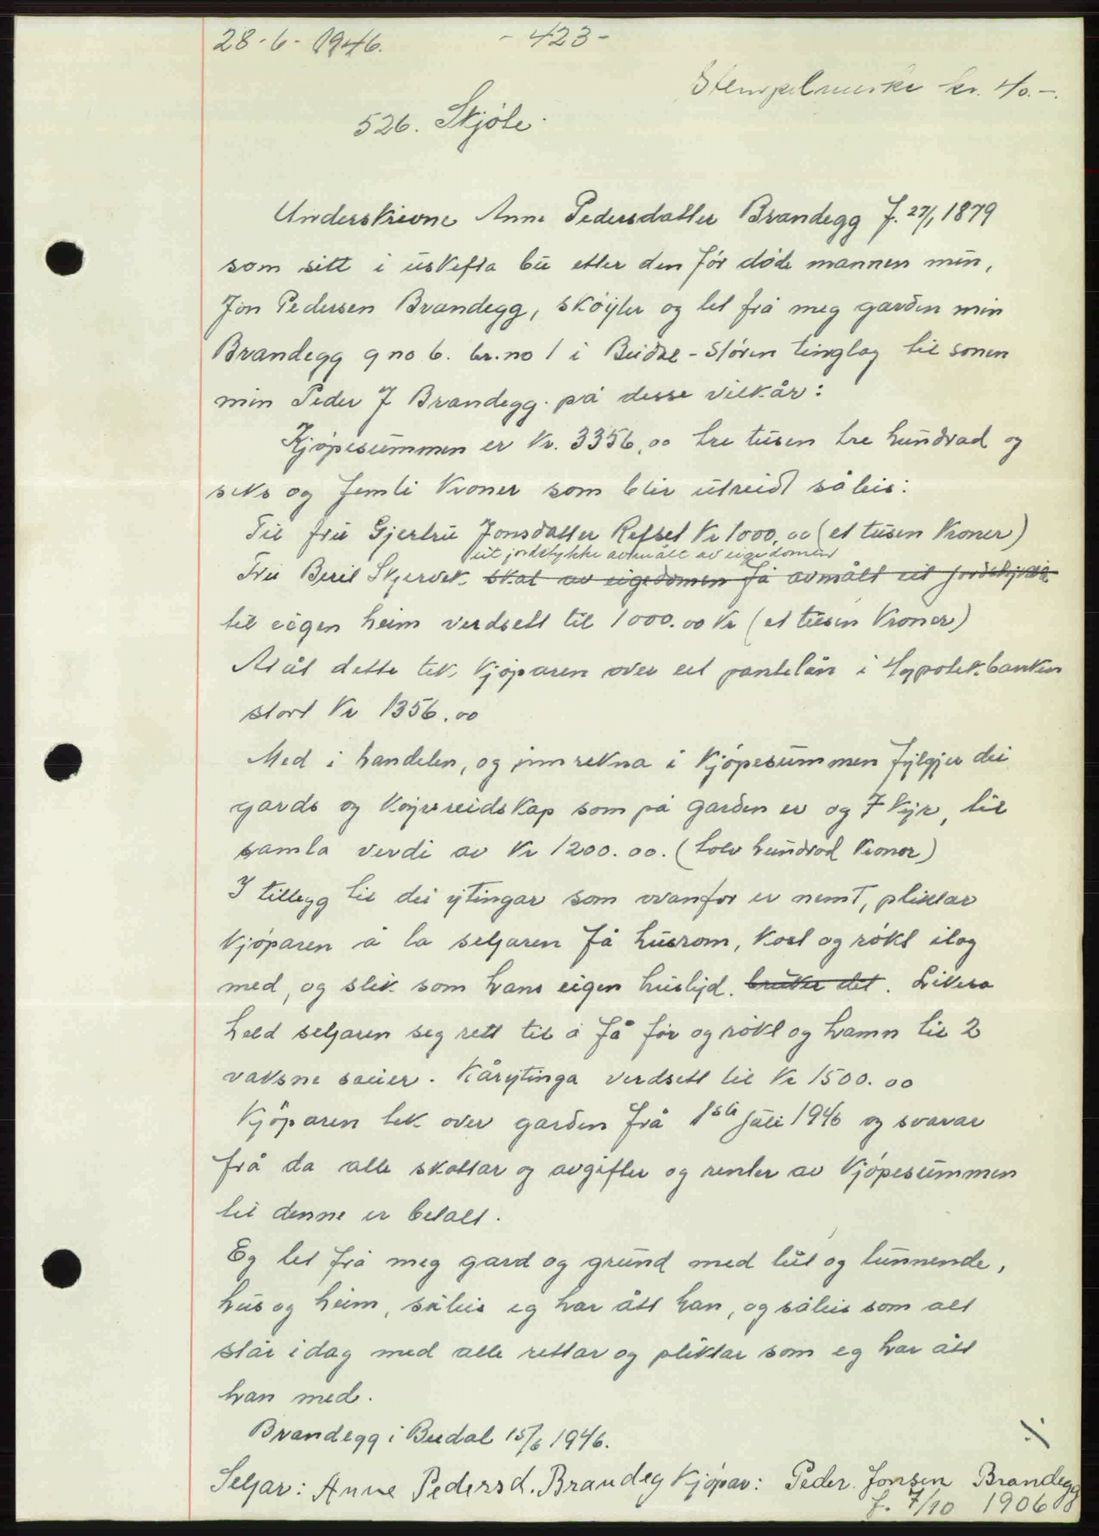 28-6-1946.
- 423 -
Stempelmerke kr. 40.-.
526. Skjøte.
Underskrevne Anne Pedersdatter Brandegg f. 27/1 1879
som sitt i uskefta bu etter den før døde mannen min,
Jon Pedersen Brandegg, skøyter og let frå meg garden min
Brandegg g no 6. br.no 1 i Budal - Støren tinglag til sonen
min Peder J Brandegg. på desse vilkår:
Kjøpesummen er Kr. 3356,00 tre tusen tre hundrad og
seks og femti Kroner som blir utreidt såleis:
Til fru Gjertru Jonsdatter Refset Kr 1000,00 (et tusen Kroner)
eit jordstykke avmålt av eigedomen
Fru Beret Skjervek skal av eigedomen få avmålt eit jordstykke
til eigen heim verdsett til 1000.00 Kr (et tusen Kroner)
Atåt dette tek Kjøparen over eit pantelån i Hypotek.banken
stort Kr 1356.00
Med i handelen, og innrekna i Kjøpesummen fylgjer dei
gards og Køyrereidskap som på garden er og 7 Kyr, til
samla verdi av Kr 1200.00. (tolv hundrad Kroner)
I tillegg til dei ytingar som ovanfor er nemt, pliktar
Kjøparen å la seljaren få husrom, Kost og røkt ilag
med, og slik som hans eigen huslyd. bruker det. Likeso
held seljaren seg rett til å få for og røkt og hamn til 2
vaksne sauer. Kårytinga verdsett til Kr 1500.00
Kjøparen tek over garden frå 1ste juli 1946 og svarar
frå da alle skattar og avgifter og renter av Kjøpesummen
til denne er betalt.
Eg let frå meg gard og grund med lut og lunnende,
hus og heim, såleis eg har ått han, og såleis som alt
står idag med alle rettar og pliktar som eg har ått
han med.
Brandegg i Budal 15/6 1946.
Seljar: Anne Pedersd. Brandeg Kjøpar: Peder Jonsen Brandegg
f. 7/10 1906